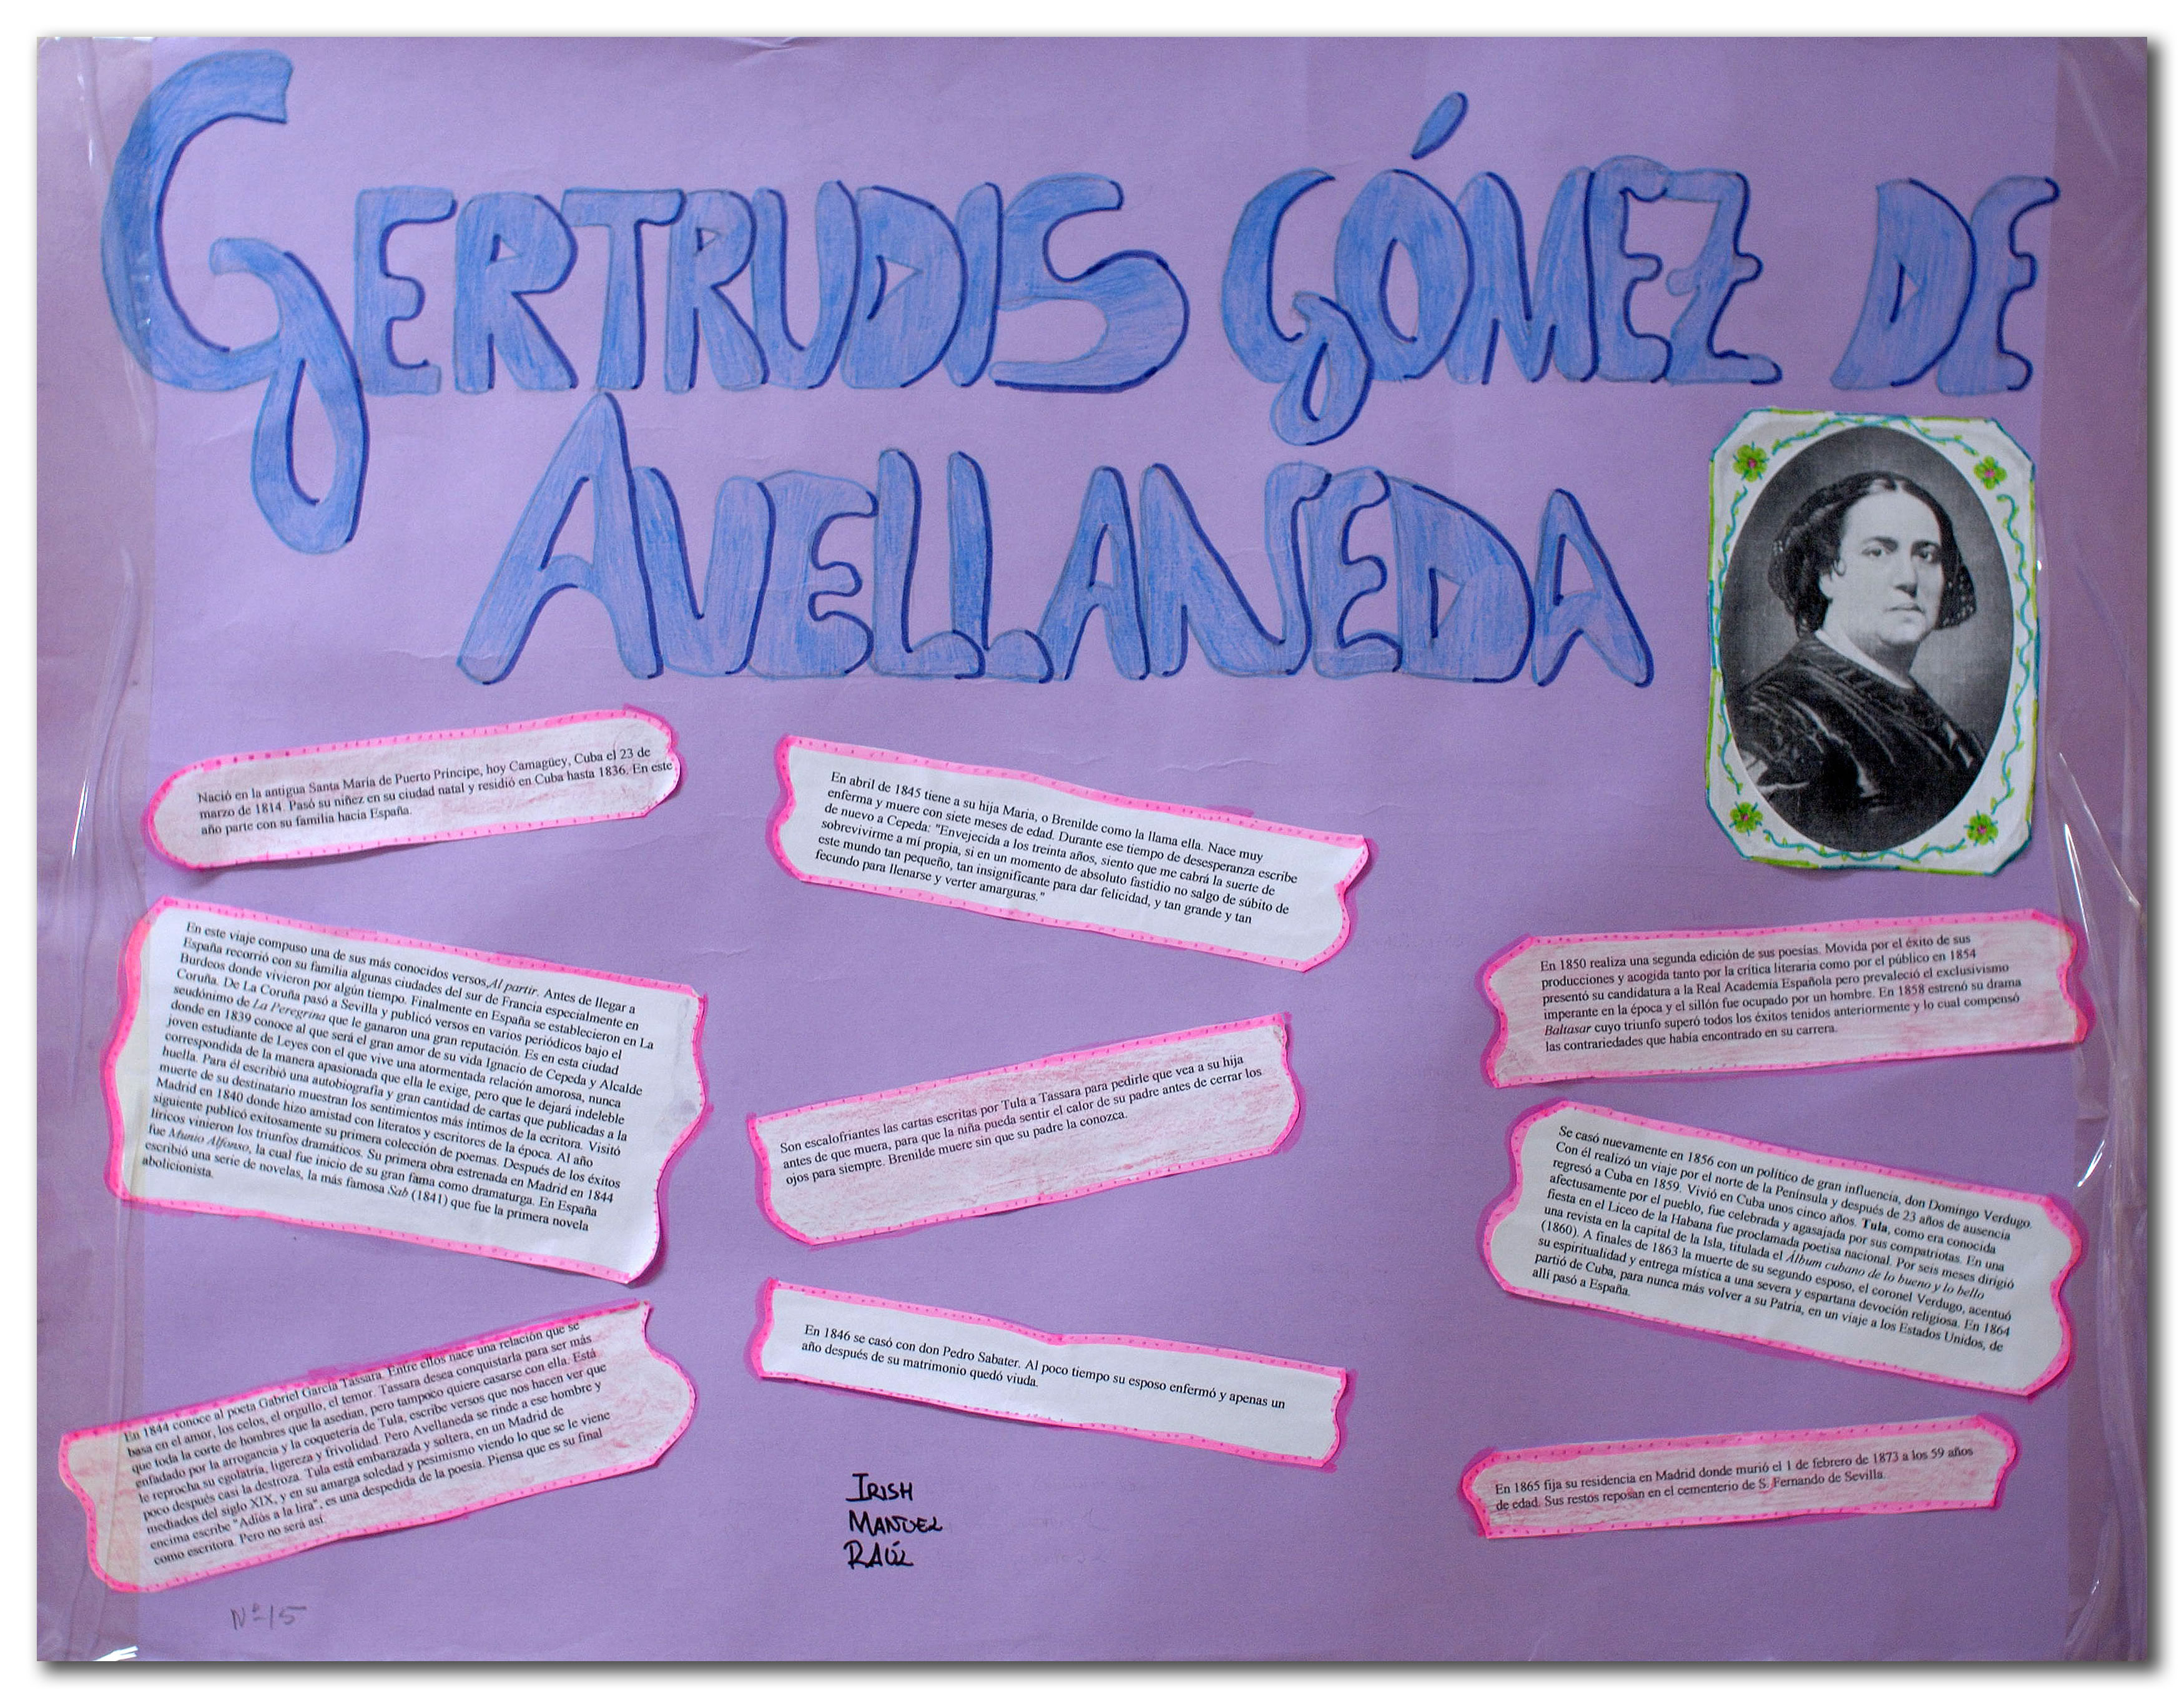 GERTRUDIS GÓMEZ DE
AVELLANEDA
Nació en la antigua Santa María de Puerto Príncipe, hoy Camagüey, Cuba el 23 de
marzo de 1814. Pasó su niñez en su ciudad natal y residió en Cuba hasta 1836. En este
año parte con su familia hacia España.
En este viaje compuso una de sus más conocidos versos,Al partir. Antes de llegar a
España recorrió con su familia algunas ciudades del sur de Francia especialmente en
Burdeos donde vivieron por algún tiempo. Finalmente en España se establecieron en La
Coruña. De La Coruña pasó a Sevilla y publicó versos en varios periódicos bajo el
seudónimo de La Peregrina que le ganaron una gran reputación. Es en esta ciudad
donde en 1839 conoce al que será el gran amor de su vida Ignacio de Cepeda y Alcalde
joven estudiante de Leyes con el que vive una atormentada relación amorosa, nunca
correspondida de la manera apasionada que ella le exige, pero que le dejará indeleble
huella. Para él escribió una autobiografía y gran cantidad de cartas que publicadas a la
muerte de su destinatario muestran los sentimientos más íntimos de la ecritora. Visitó
Madrid en 1840 donde hizo amistad con literatos y escritores de la época. Al año
siguiente publicó exitosamente su primera colección de poemas. Después de los éxitos
líricos vinieron los triunfos dramáticos. Su primera obra estrenada en Madrid en 1844
fue Munio Alfonso, la cual fue inicio de su gran fama como dramaturga. En España
escribió una serie de novelas, la más famosa Sab (1841) que fue la primera novela
abolicionista.
En 1844 conoce al poeta Gabriel García Tassara. Entre ellos nace una relación que se
basa en el amor, los celos, el orgullo, el temor. Tassara desea conquistarla para ser más
que toda la corte de hombres que la asedian, pero tampoco quiere casarse con ella. Está
enfadado por la arrogancia y la coquetería de Tula, escribe versos que nos hacen ver que
le reprocha su egolatría, ligereza y frivolidad. Pero Avellaneda se rinde a ese hombre y
poco después casi la destroza. Tula está embarazada y soltera, en un Madrid de
mediados del siglo XIX, y en su amarga soledad y pesimismo viendo lo que se le viene
encima escribe "Adiós a la lira", es una despedida de la poesía. Piensa que es su final
como escritora. Pero no será así.
En abril de 1845 tiene a su hija Maria, o Brenilde como la llama ella. Nace muy
enferma y muere con siete meses de edad. Durante ese tiempo de desesperanza escribe
de nuevo a Cepeda: "Envejecida a los treinta años, siento que me cabrá la suerte de
sobrevivirme a mí propia, si en un momento de absoluto fastidio no salgo de súbito de
este mundo tan pequeño, tan insignificante para dar felicidad, y tan grande y tan
fecundo para llenarse y verter amarguras."
Son escalofriantes las cartas escritas por Tula a Tassara para pedirle que vea a su hija
antes de que muera, para que la niña pueda sentir el calor de su padre antes de cerrar los
ojos para siempre. Brenilde muere sin que su padre la conozca.
En 1846 se casó con don Pedro Sabater. Al poco tiempo su esposo enfermó y apenas un
año después de su matrimonio quedó viuda.
En 1850 realiza una segunda edición de sus poesías. Movida por el éxito de sus
producciones y acogida tanto por la crítica literaria como por el público en 1854
presentó su candidatura a la Real Academia Española pero prevaleció el exclusivismo
imperante en la época y el sillón fue ocupado por un hombre. En 1858 estrenó su drama
Baltasar cuyo triunfo superó todos los éxitos tenidos anteriormente y lo cual compensó
las contrariedades que había encontrado en su carrera.
Se casó nuevamente en 1856 con un político de gran influencia, don Domingo Verdugo.
Con él realizó un viaje por el norte de la Península y después de 23 años de ausencia
regresó a Cuba en 1859. Vivió en Cuba unos cinco años. Tula, como era conocida
afectusamente por el pueblo, fue celebrada y agasajada por sus compatriotas. En una
fiesta en el Liceo de la Habana fue proclamada poetisa nacional. Por seis meses dirigió
una revista en la capital de la Isla, titulada el Álbum cubano de lo bueno y lo bello
(1860). A finales de 1863 la muerte de su segundo esposo, el coronel Verdugo, acentuó
su espiritualidad y entrega mística a una severa y espartana devoción religiosa. En 1864
partió de Cuba, para nunca más volver a su Patria, en un viaje a los Estados Unidos, de
allí pasó a España.
En 1865 fija su residencia en Madrid donde murió el 1 de febrero de 1873 a los 59 años
de edad. Sus restos reposan en el cementerio de S. Fernando de Sevilla.
IRISH
MANUEL
RAÚL
Nº 15